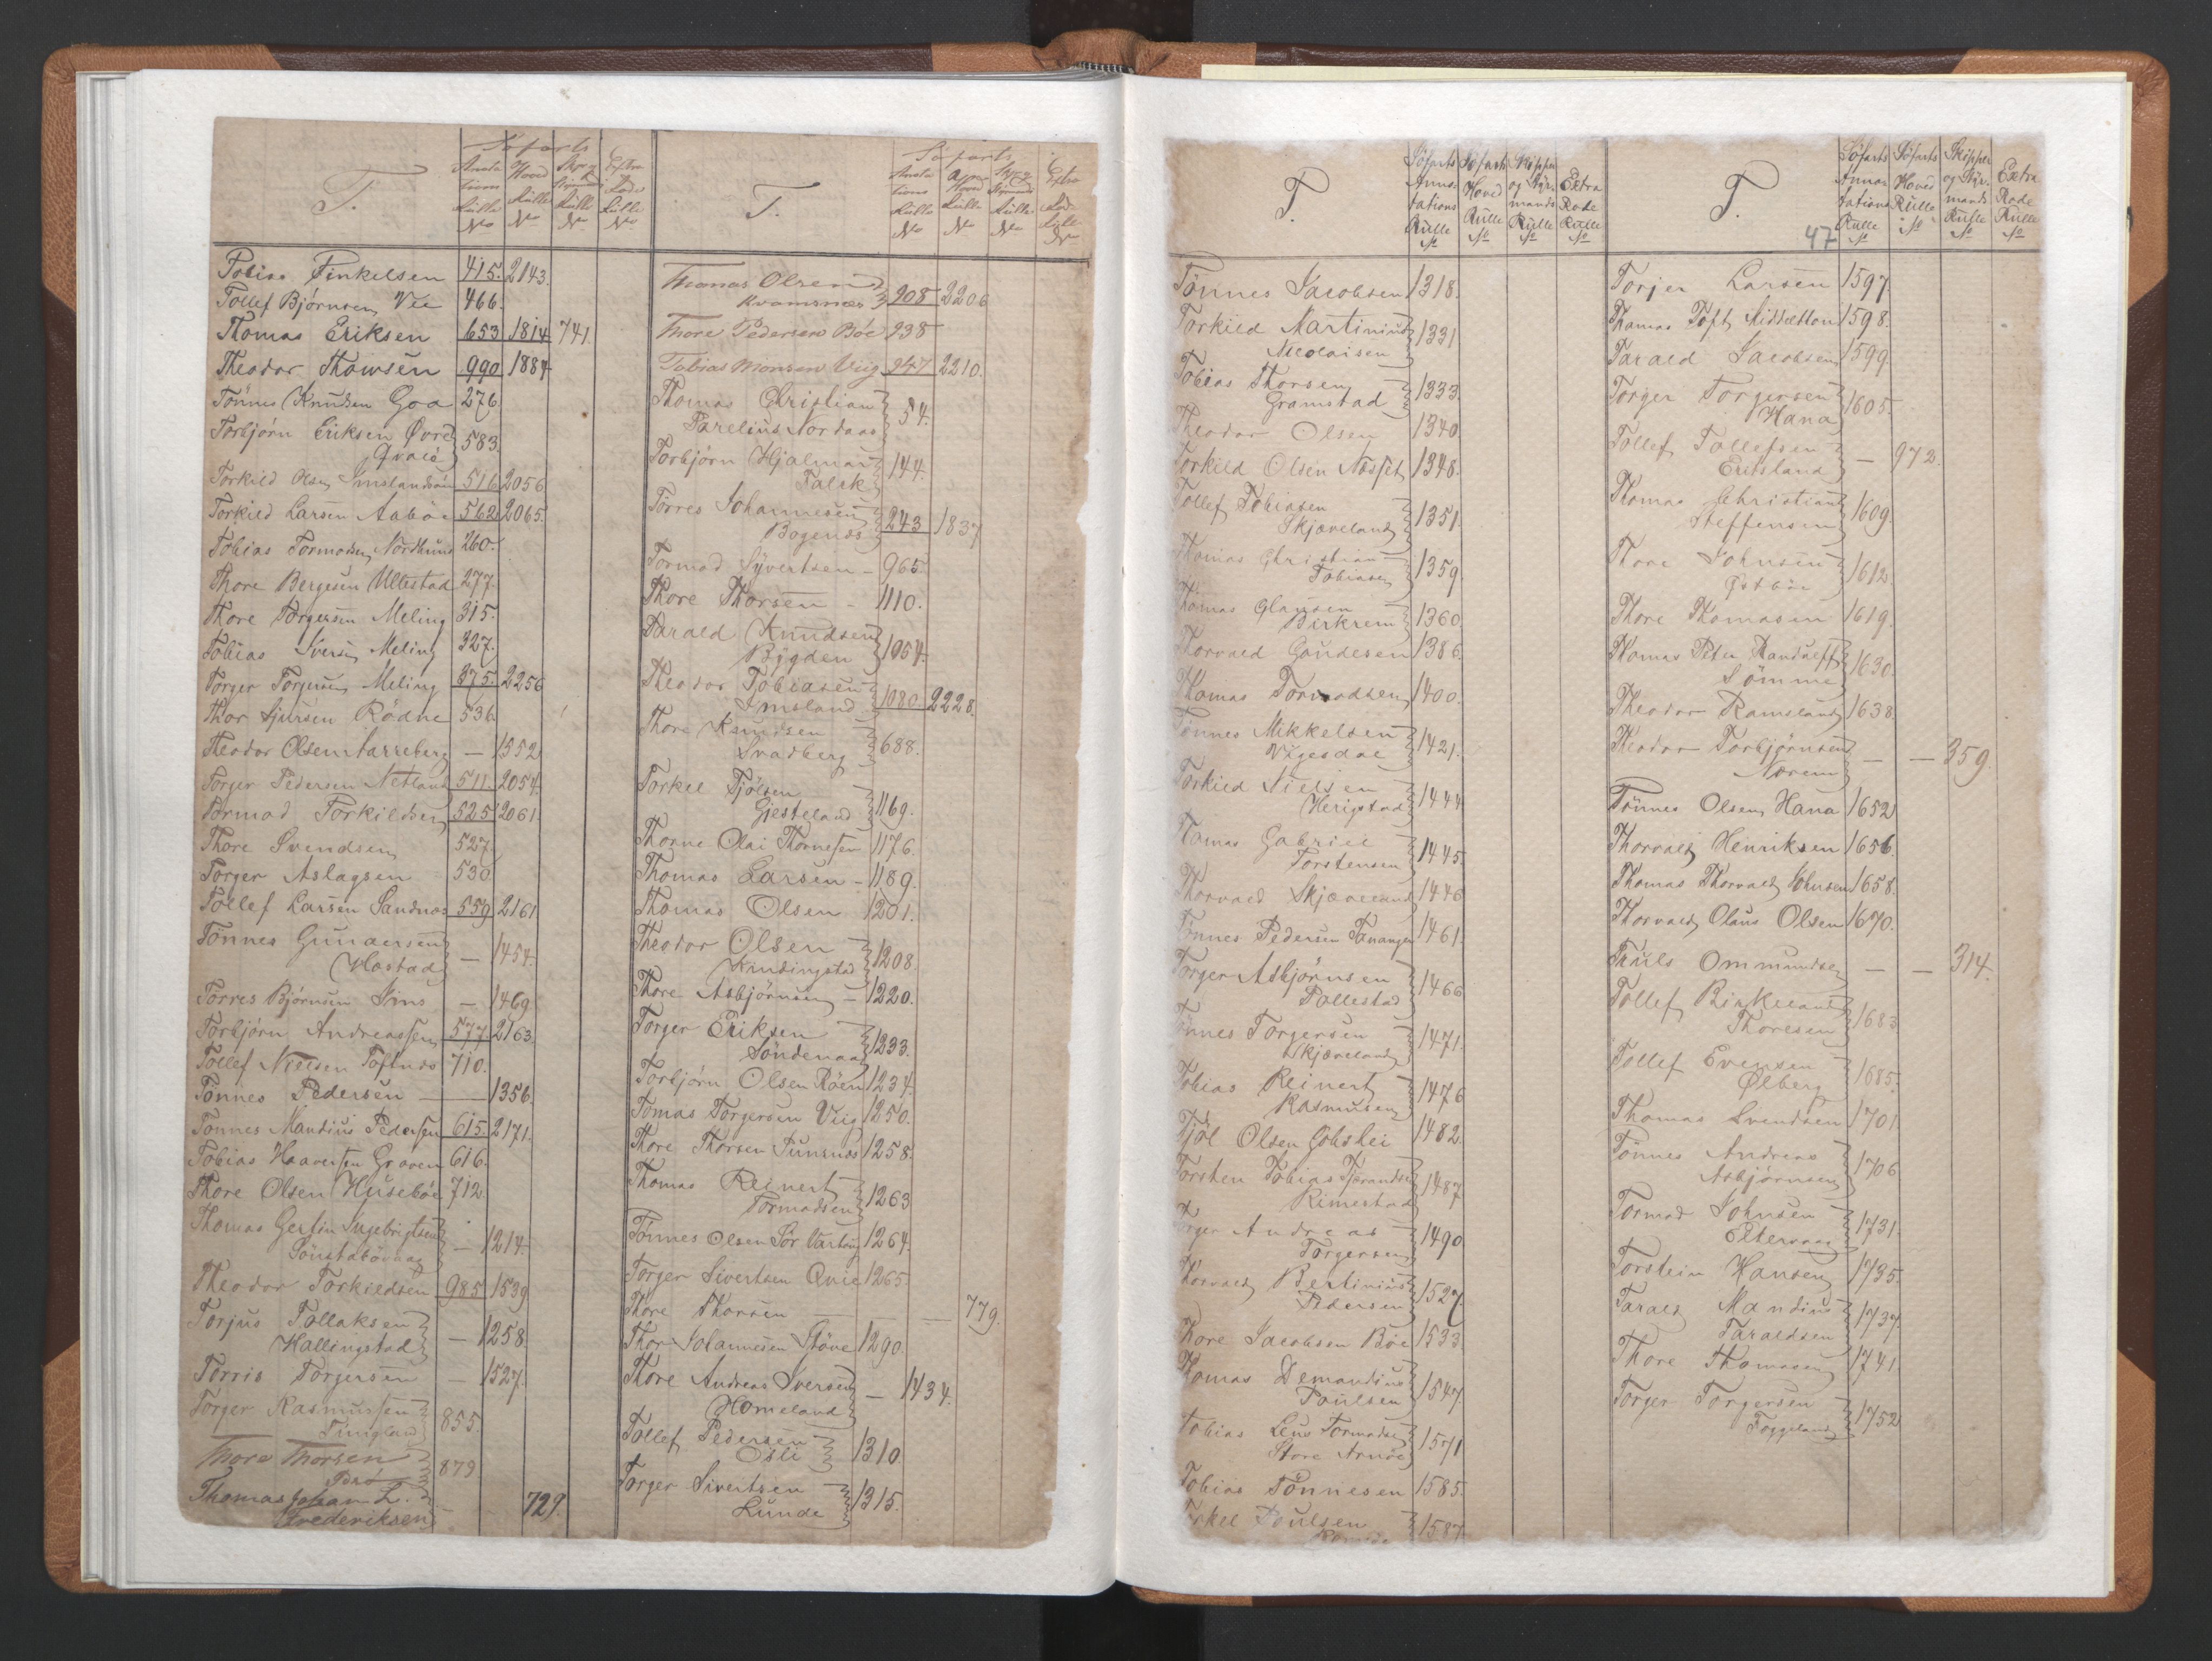 T.
Søfarts
Annota
tions
Rülle
No
Hoved
Rülle
No
Rülle
No
Extra
Rode
Rülle
No
Tobias Finkelsen 415. 2143.
Tollef Bjørnsen Vee 466.
Thomas Eriksen 653 1814 741.
Theodor Thomsen 990 1887
Tönnes Knudsen Goa 276.
Torbjørn Eriksen Øvre
Qvale 583.
Torkild Olsen 516 2056
Torkild Larsen Aabøe 562 2065.
Tobias Tormodsen Nordlund 260.
Thore Bergesen Ullestad 277.
Thore Torgersen Meling 315.
Tobias Iversen Meling 327.
Torger Torgersen Meling 375. 2256
Thor Sjursen Rödne 536.
Theodor Olsen Tarreberg — 1552
Torger Pedersen Netland 511. 2054.
Tormod Torkildsen 525 2061.
Thore Svendsen 527.
Torger Aslagsen 530
Tollef Larsen Sandnæs 559 2161
Tönnes Gunnersen
Hostad — 1454.
Torres Bjørnsen Sims — 1469.
Torbjörn Andreassen 577 2163.
Tollef Nielsen Toftnes 710.
Tönnes Pedersen — 1356.
Tonnes Mandius Pedersen 615 2171.
Tobias Haaversen Graven 616.
Thore Olsen Husebøe 712.
Thomas Gertin Ingebrigtsen
— 1214.
Theodor Torkildsen 985 1539.
Torjus Tollaksen
Hallingstad — 1258.
Torris Torgersen — 1527.
Torger Rasmussen
Tungland 855.
Thore Thorsen
879.
Thomas Johan L.
Frederiksen — 729.
T.
Søfarts
Annota
tions
Rülle
No
Hoved
Rülle
No
Rülle
No
Extra
Rode
Rülle
No
Thomas Olsen
Kvamsnæs 908 2206
Thore Pedersen Böe 938
Tobias Monsen Viig 947 2210.
Thomas Christian
Parelius Nordaas 54.
Torbjørn Hjalmar
Falck 144.
Torres Johannesen
Bogenæs 243 1837
Tormod Syvertsen — 965.
Thore Thorsen — 1110.
Tarald Knudsen
Bygden 1054.
Theodor Tobiasen
Imsland 1080. 2228.
Thore Knudsen
Svadberg 688.
Torkel Tjölsen
Gjesteland 1169.
Thorne Olai Thornesen 1176.
Thomas Larsen — 1189.
Thomas Olsen 1201.
Theodor Olsen
Kindingstad 1208.
Thore Asbjörnsen — 1220.
Torger Eriksen
Söndenaa 1233.
Torbjørn Olsen Röen 1234.
Tomas Torgersen Viig 1250.
Thore Thorsen Sunsnæs 1258.
Thomas Reinert
Tormodsen 1263
Tönnes Olsen Sör Varhoug 1264.
Torger Sivertsen Qvie 1265.
Thore Thorsen — — 779.
Thor Johannesen Støve 1290.
Thore Andreas Iversen
Homeland — 1434.
Tollef Pedersen
Osli 1310
Torger Sivertsen
Lunde 1315.
T.
Söfarts
Anno-
tations
Rülle
No
Söfarts
Hoved
Rülle
No
Skipper
og Styr-
mands
Rülle
No
Extra
Rode
Rulle
No
Tönnes Jacobsen 1318.
Torkild Martinius
Nicolaisen 1331
Tobias Thorsen
Gramstad 1333.
Theodor Olsen 1340.
Torkild Olsen Næsset 1348.
Tollef Tobiasen
Skjæveland 1351.
Thomas Christian
Tobiasen 1359.
Thomas Clausen
Birkrem 1360.
Thorvald Gaudesen 1386.
Thomas Tormodsen 1400.
Tönnes Mikkelsen
Vigesdal 1421.
Torkild Nielsen
Herigstad 1444.
Tomas Gabriel
Torstensen 1445.
Thorvald Skjæveland 1446
Tönnes Pedersen Tananger 1461.
Torger Asbjörnsen
Pollestad 1466.
Tönnes Torgersen
Skjæveland 1471.
Tobias Reinert
Rasmussen 1476
Tjöl Olsen 1482.
Torsten Tobias
Rimestad 1487
Torger Andreas
Torgersen 1490.
Thorvald Bertinius
Pedersen 1527.
Thore Jacobsen Böe 1533.
Thomas Demandius
Poulsen 1547.
Tobias Leus Tormodsen
Store Arnöe 1571
Tobias Tönnesen 1585.
Torkel Poulsen 1587.
T.
47
Söfarts
Annos
tations
Rulle
No
Söfarts
Hoved
Rülle
No
Skipper
og Styr.
mands
Rulle
No
Extra
Rode
Rülle
No
Torjer Larsen 1597.
Thomas Toft Midsætton 1598.
Tarald Jacobsen 1599.
Torger Torgersen
Hana 1605.
Tollef Tollefsen
— 972.
Thomas Christian
Steffensen 1609.
Thore Johnsen
Østböe 1612.
Thore Thomasen 1619.
Thomas Peter Randulff
Sömme 1630.
Theodor Ramsland 1638.
Theodor Torbjørnsen
Nærem — — 359.
Tönnes Olsen Hana 1652.
Thorvald Henriksen 1656.
Thomas Thorvald Johnsen 1658.
Thorvald Olaus Olsen 1670.
Truls Ommundsen — — 314.
Tollef Birkeland
Thoresen 1683.
Tollef Evensen
Ølberg 1685.
Thomas Svendsen 1701.
Tönnes Andreas
Asbjørnsen 1706
Tormod Johnsen
Eltervaag 1731.
Torstein Hansen 1735.
Tarald Mandius
Taraldsen 1737.
Thore Thomasen 1741.
Torger Torgersen
Foggeland 1752.